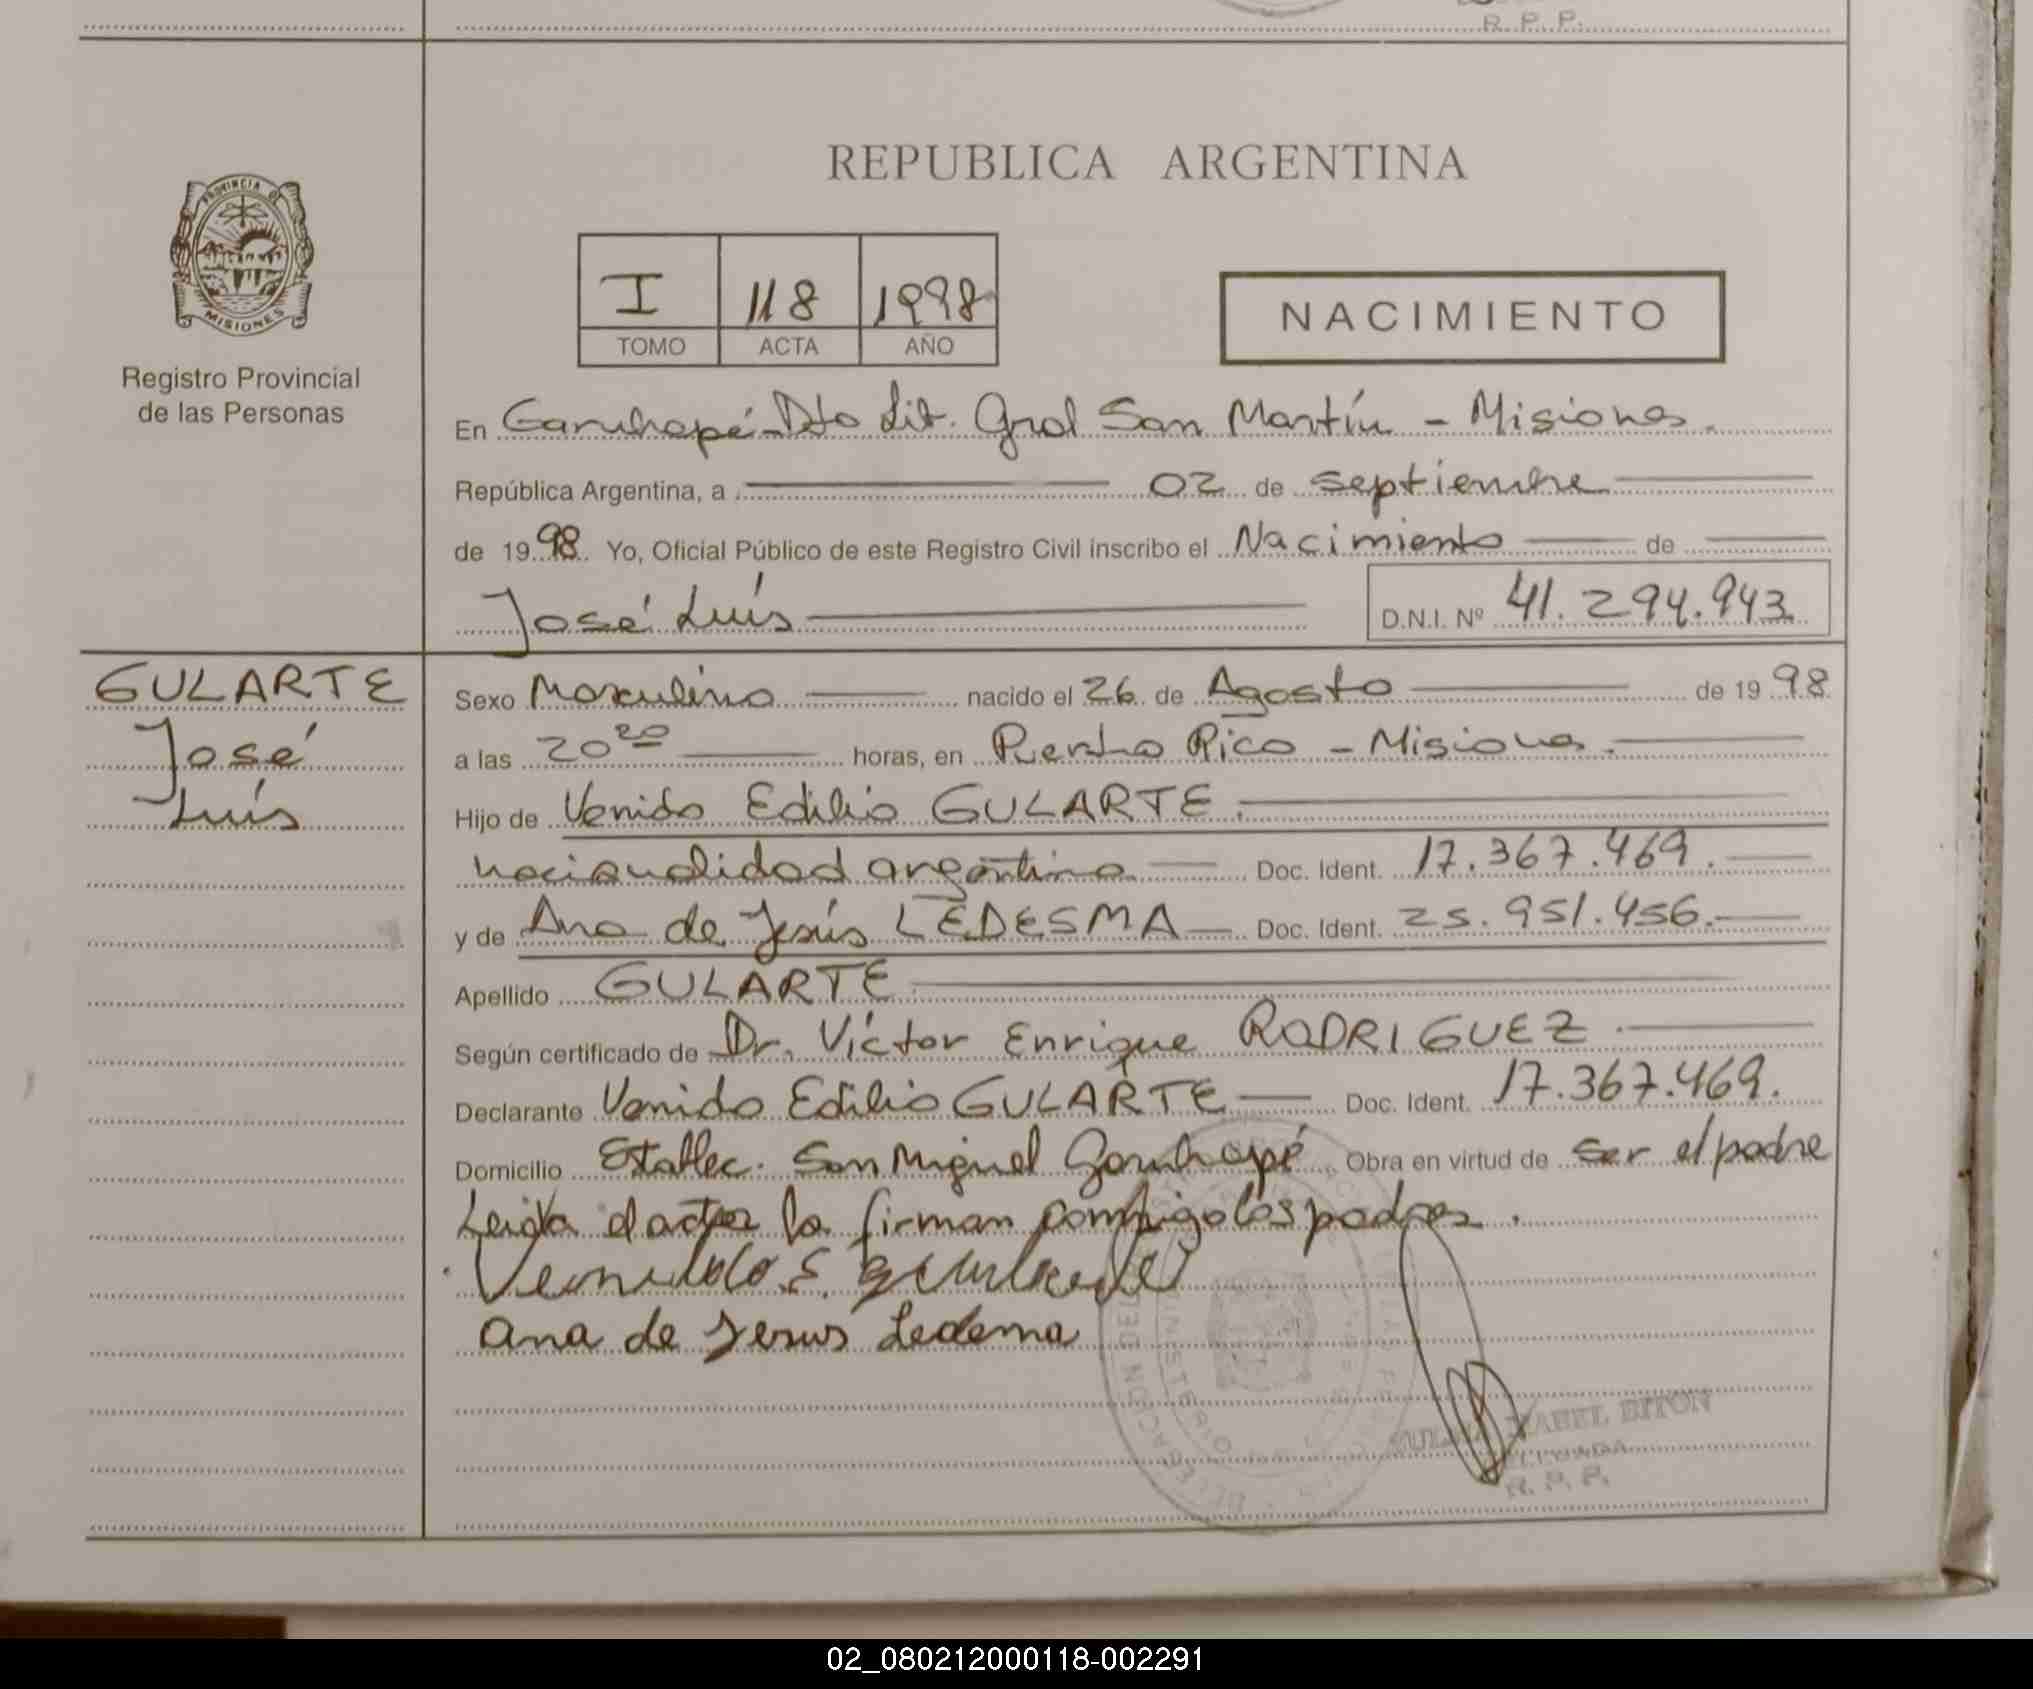 R. P. P.
REPUBLICA ARGENTINA
PROVINCIA DE
MISIONES
Registro Provincial
de las Personas
I 118 1998
TOMO ACTA AÑO
NACIMIENTO
En Garuhapé-Dto Lib. Gral San Martín - Misiones.
República Argentina, a 02 de septiembre
de 1998 Yo, Oficial Público de este Registro Civil inscribo el Nacimiento de
José Luís D.N.I. Nº 41.294.943.
GULARTE
José
Luís
Sexo Masculino nacido el 26 de Agosto de 1998
a las 20 20 horas, en Puerto Rico - Misiones.
Hijo de Venido Edilio GULARTE.
nacionalidad argentina Doc. Ident. 17.367.469.
y de Ana de Jesús LEDESMA Doc. Ident. 25.951.456.
Apellido GULARTE
Según certificado de Dr. Víctor Enrique RODRIGUEZ.
Declarante Venido Edilio GULARTE Doc. Ident. 17.367.469.
Domicilio Establec. San Miguel Garuhapé Obra en virtud de ser el padre
Leida el acta la firman conmigo los padres.
ana de Jesus Ledema
MABEL BITON
R. P. P.
02_080212000118-002291